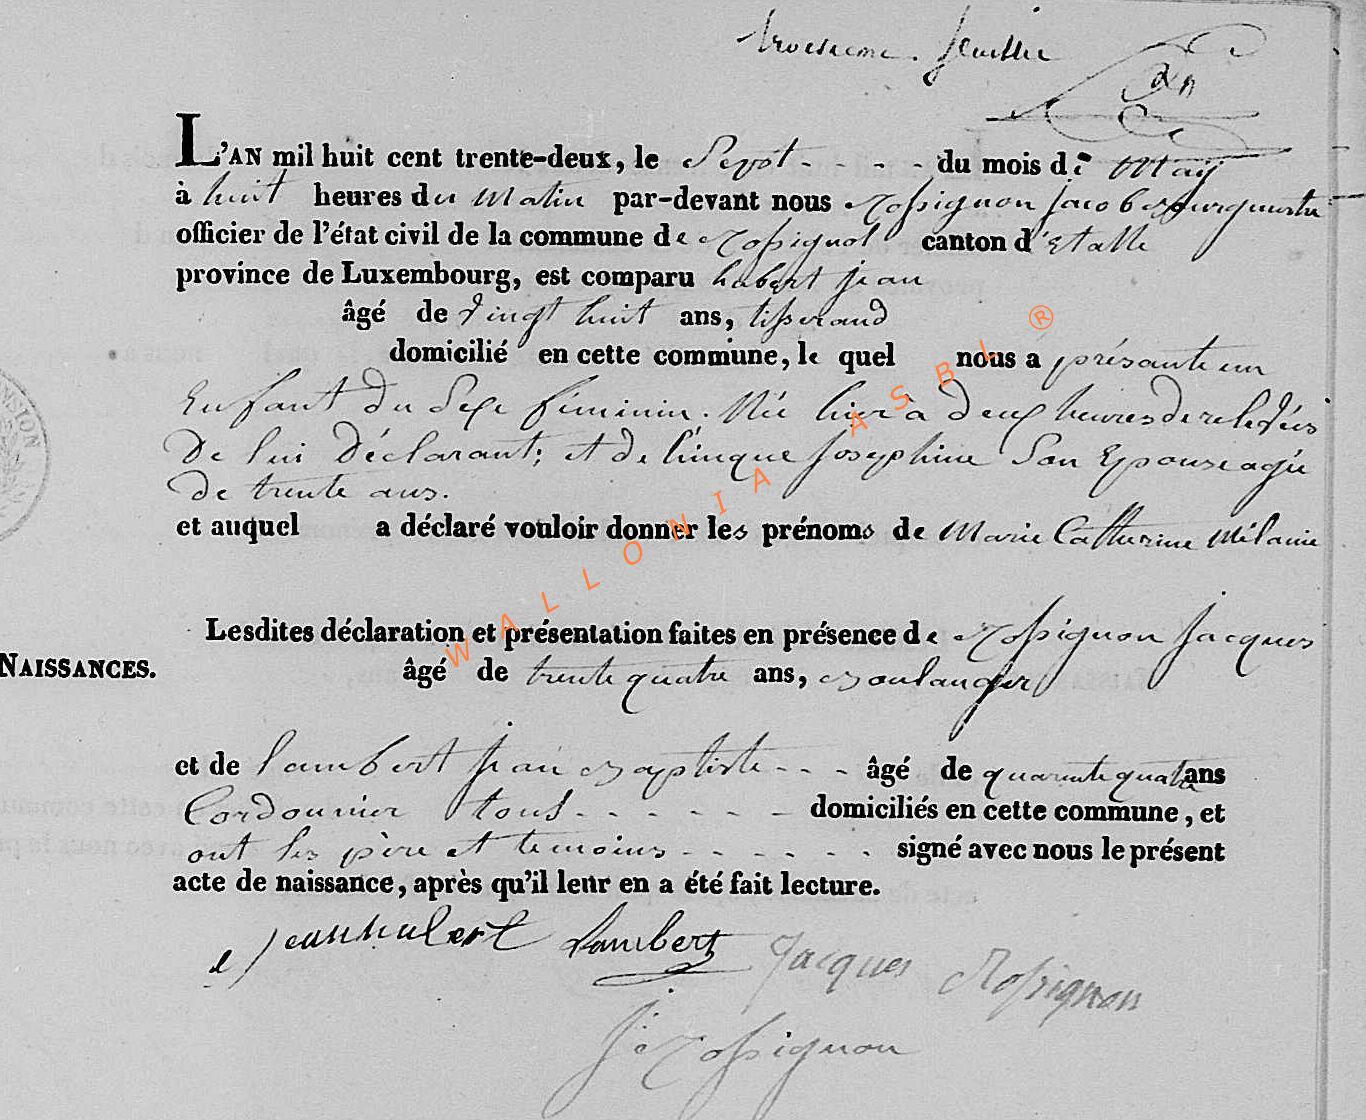 troisieme feuillet
L'AN mil huit cent trente-deux, le Sept - - - - du mois de May
à huit heures du Matin par-devant nous Rossignon Jacob Bourguemestre
officier de l'état civil de la commune de Rossignol canton d'Etalle
province de Luxembourg, est comparu habert jean
âgé de vingt huit ans, tisserand
domicilié en cette commune, le quel nous a présante un
Enfant du Sexe féminin. Née hier à deux heures de relevées
De lui Déclarant; et de Joséphine Son Epouse agée
de trente ans.
et auquel a déclaré vouloir donner les prénoms de Marie Catherine Mélanie
Lesdites déclaration et présentation faites en présence de Rossignon Jacques
NAISSANCES.
âgé de trente quatre ans, Boulanger
et de lambert jean Baptiste - - - âgé de quarente quatre ans
Cordonnier tous - - - - - domiciliés en cette commune, et
ont les père et temoins - - - - - - signé avec nous le présent
acte de naissance, après qu'il leur en a été fait lecture.
jean habert Lambert Jacques Rossignon
J Rossignon
NSION
WALLONIA ASBL ®